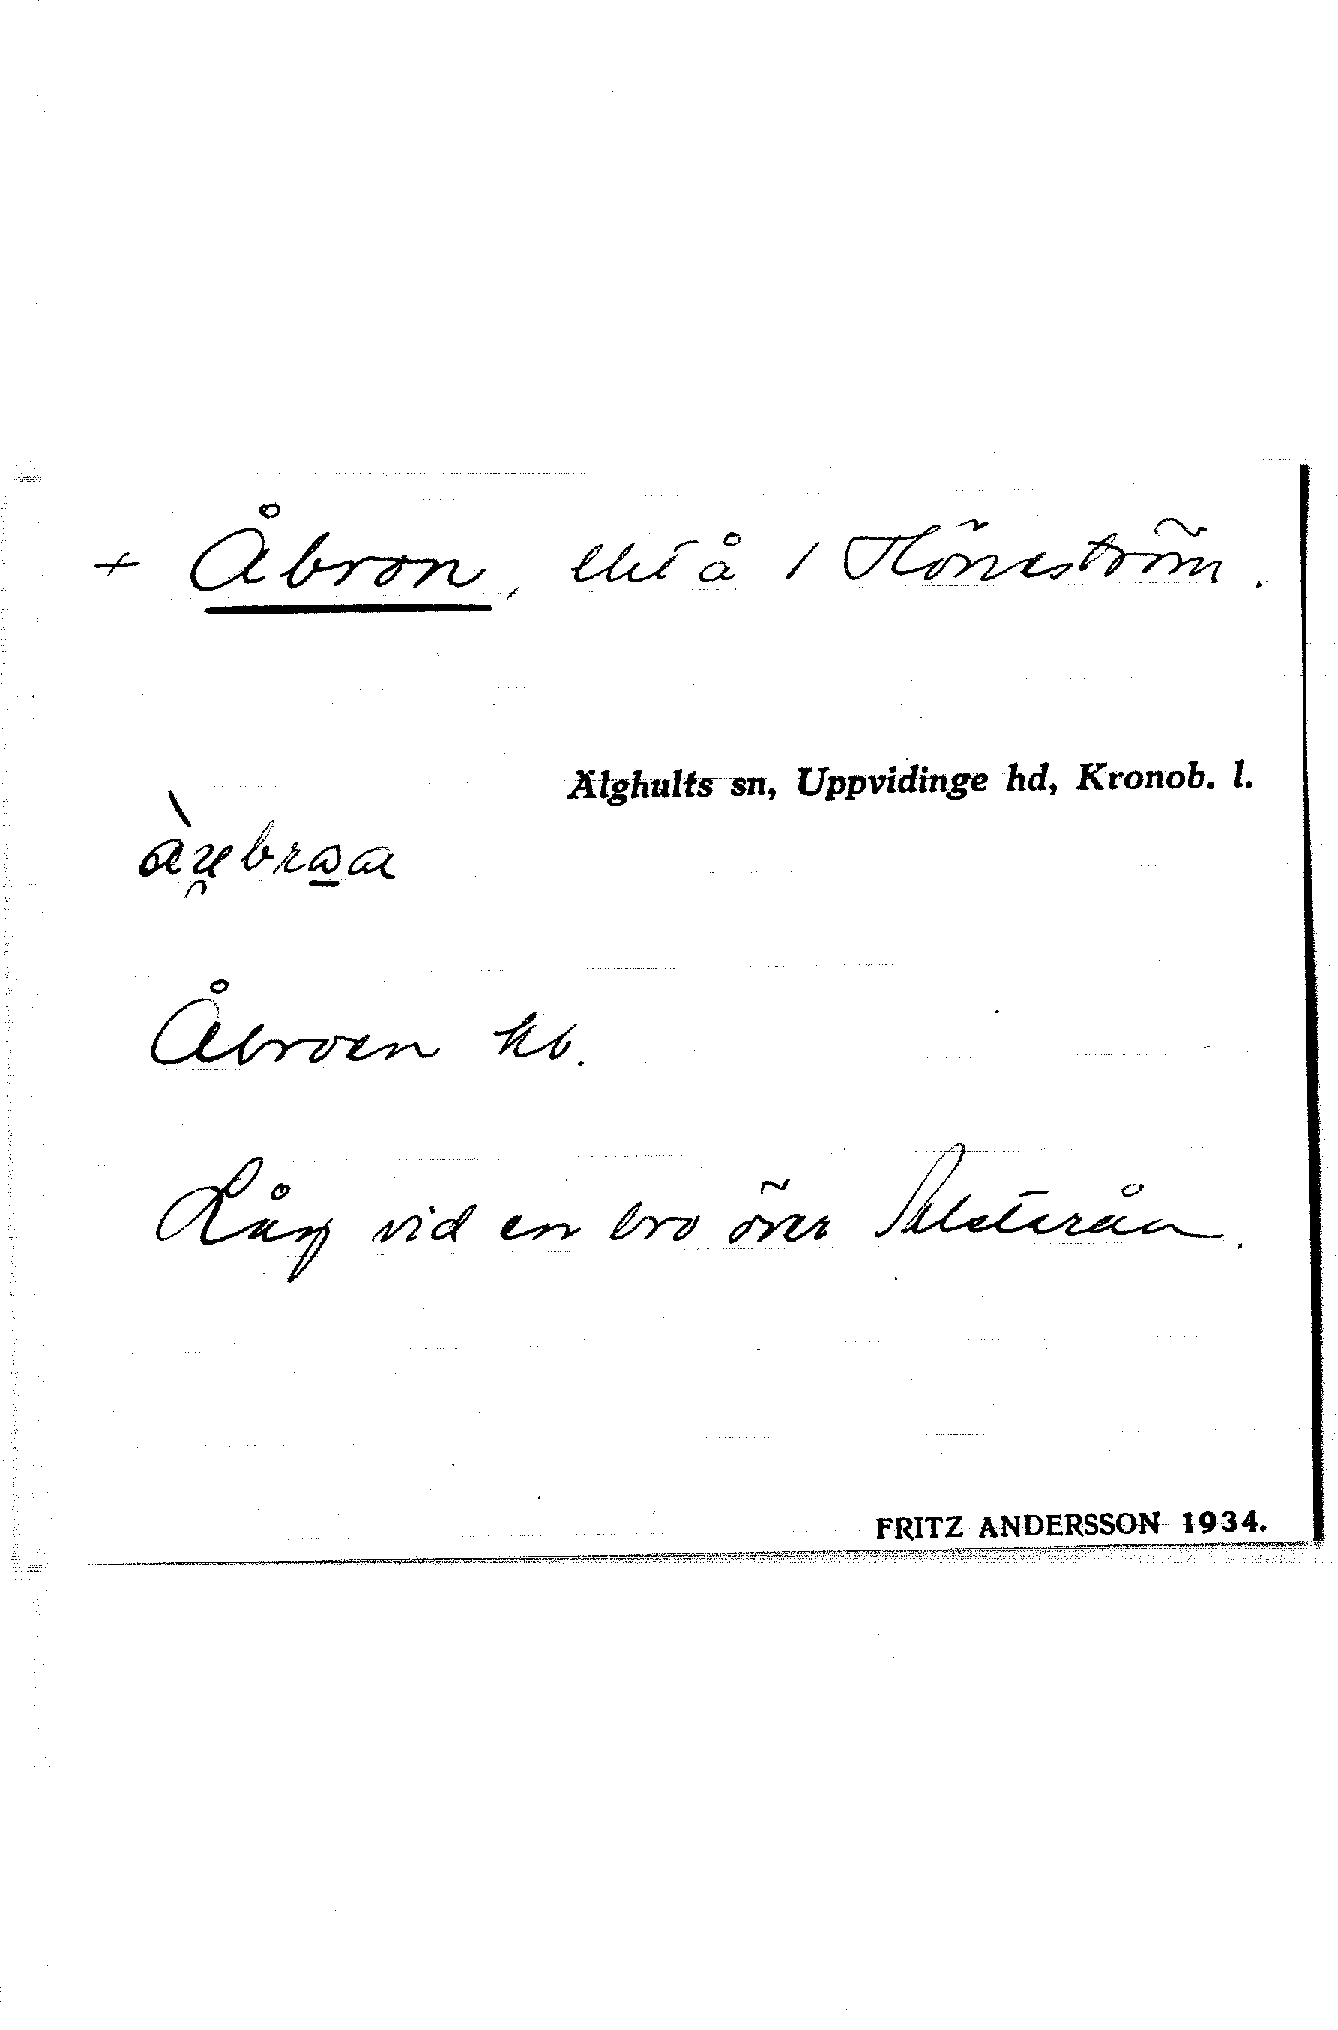 + Åbron, lht å 1 Höneström.
Älghults sn, Uppvidinge hd, Kronob. l.
Åbroen kb.
Låg vid en bro över Alsterån.
FRITZ ANDERSSON 1934.